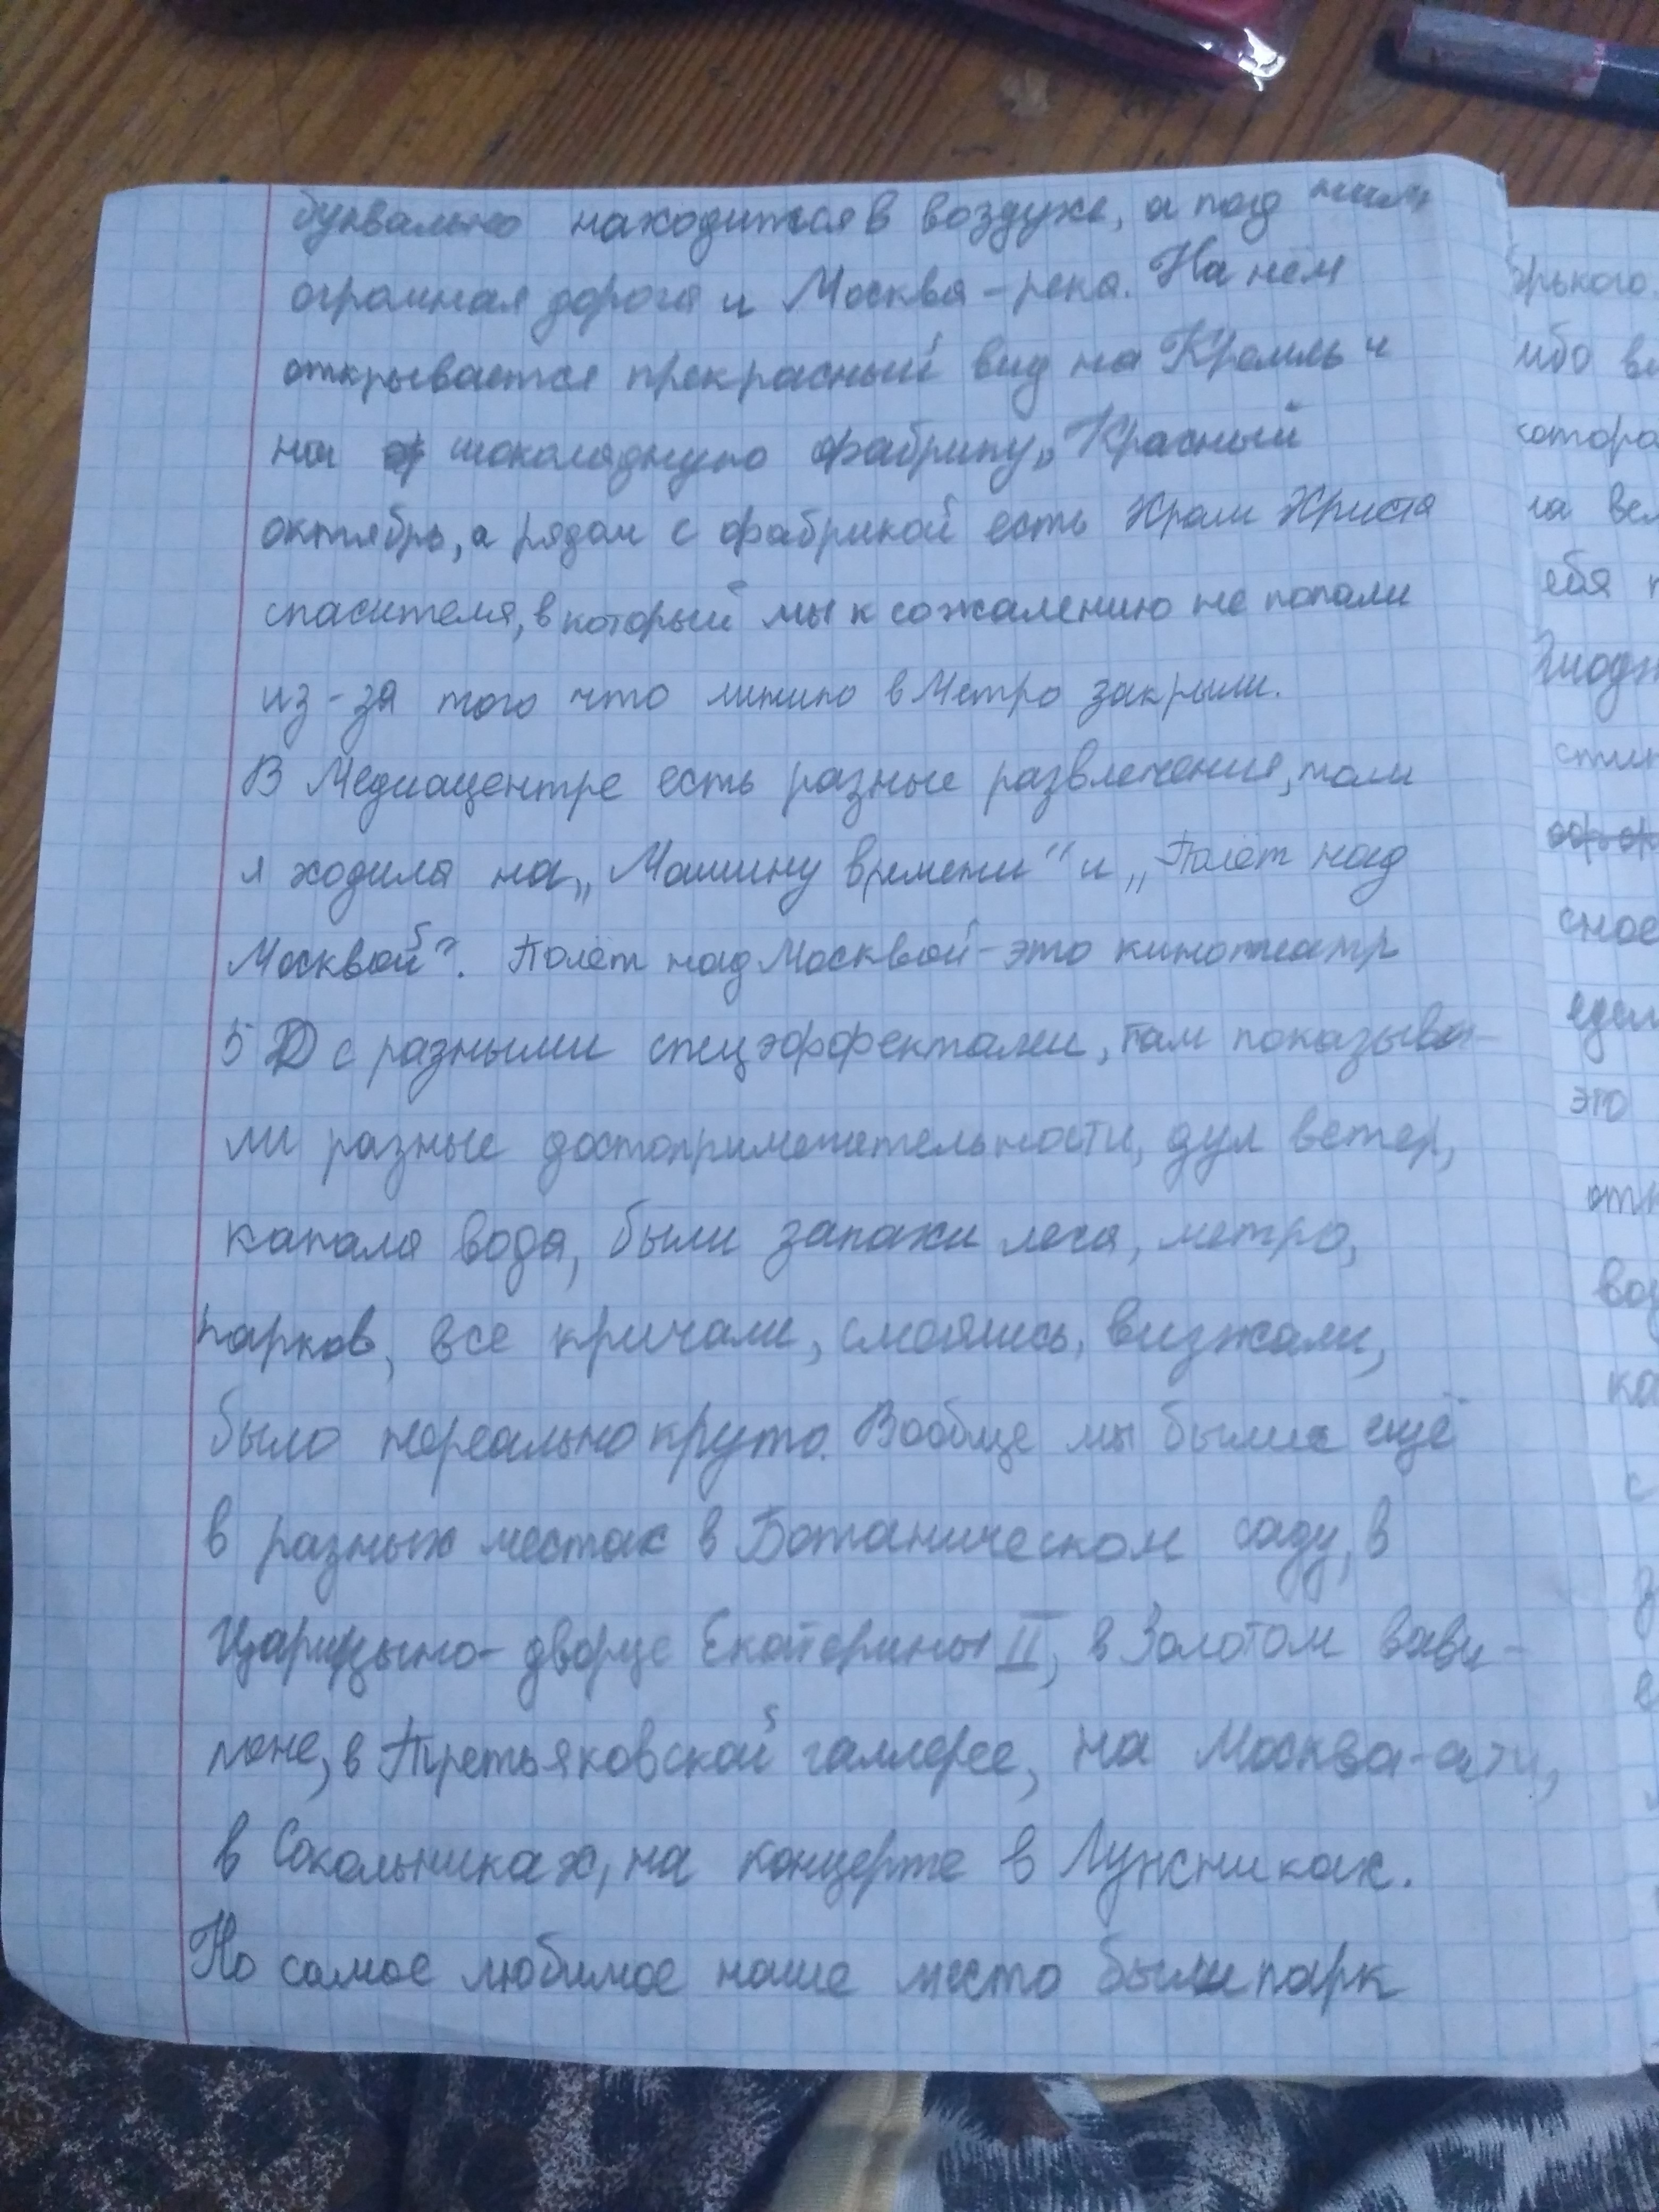 буквально находится в воздухе, а под ним
огромная дорога и Москва-река. На нём
открывается прекрасный вид на Кремль и
на шоколадную фабрику „Красный
октябрь, а рядом с фабрикой есть Храм Христа
спасителя, в который мы к сожалению не попали
из-за того что линию в Метро закрыли.
В Медиацентре есть разные развлечения, там
я ходила на „Машину времени“ и „Полёт над
Москвой“. Полёт над Москвой-это кинотеатр
5D с разными спецэффектами, там показыва-
ли разные достопримечательности, дул ветер,
капала вода, были запахи леса, метро,
парков, все кричали, смеялись, визжали,
было нереально круто. Вообще мы были ещё
в разных местах в Ботаническом саду, в
Царицыно-дворце Екатерины II, в Золотом вави-
лоне, в Третьяковской галлерее, на Москва-сити,
в Сокольниках, на концерте в Лужниках.
Но самое любимое наше место были парк
орького.
ибо
котора
ебя
сное
это